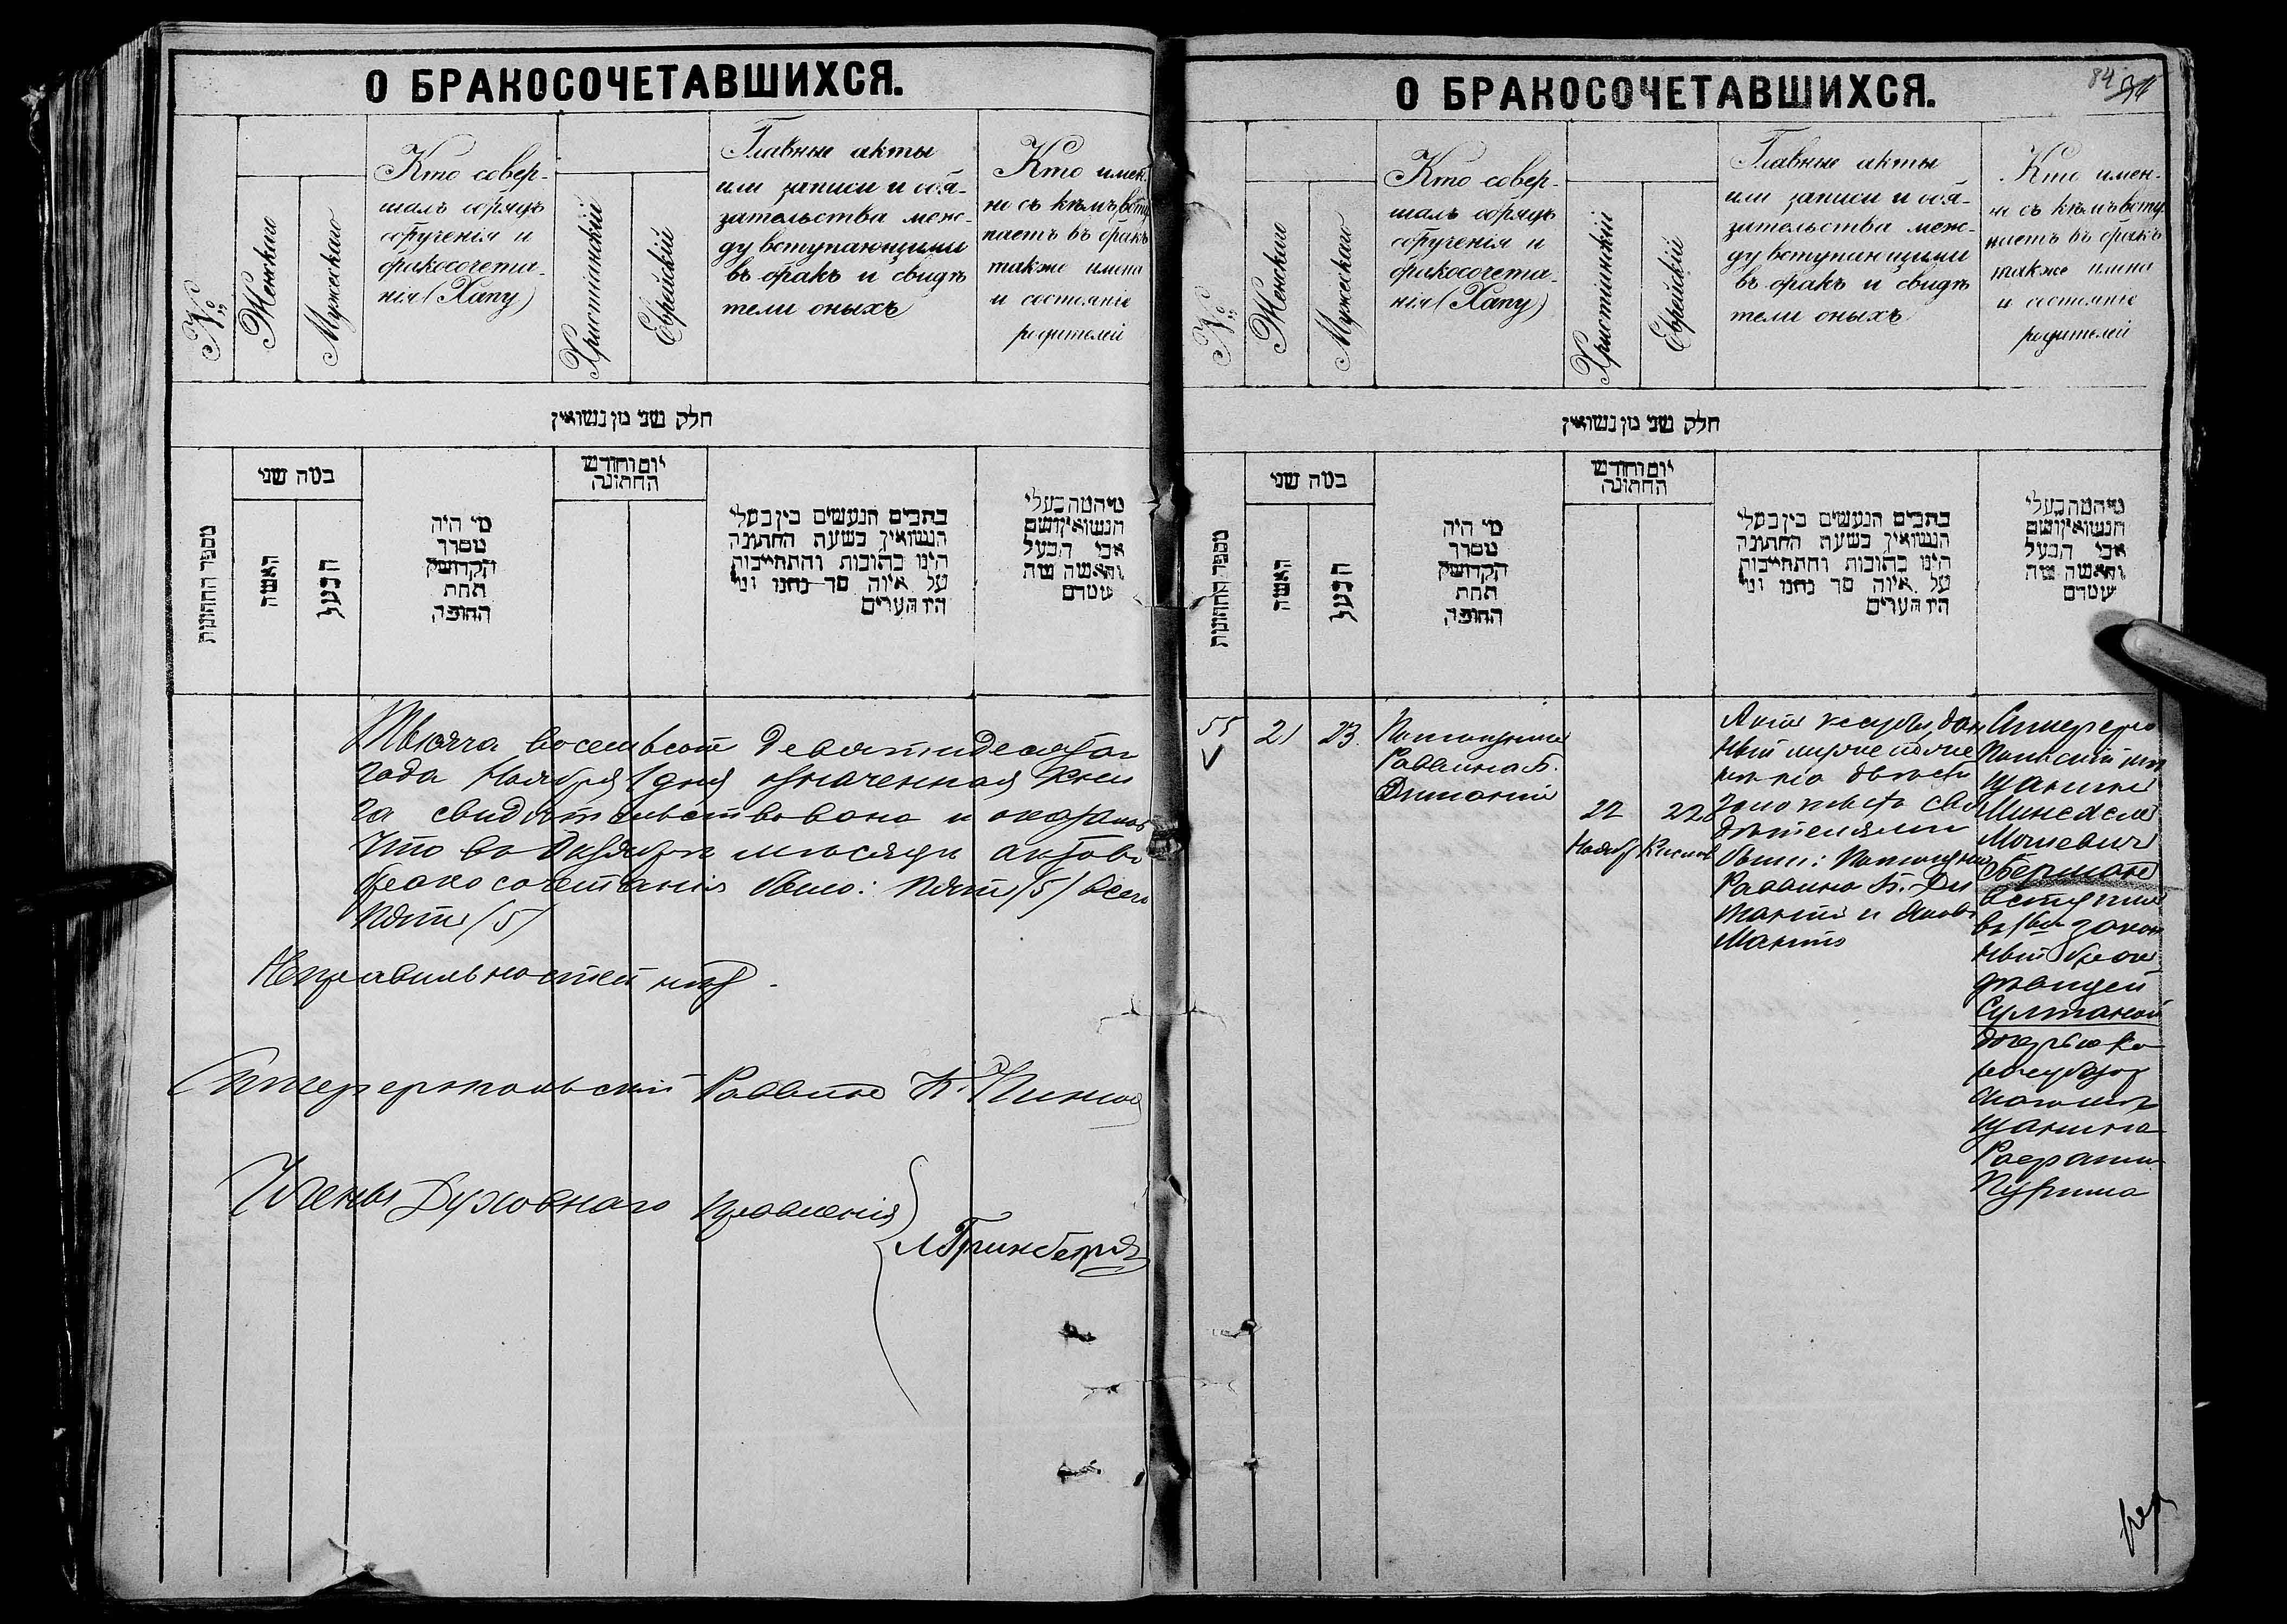 О БРАКОСОЧЕТАВШИХСЯ.
№
Женскаго
Мужескаго
Кто совер-
шалъ обрядъ
обрученія и
бракосочета-
нія (Хапу)
Христіанскій
Еврейскій
Главные акты
или записи и обя-
зательства меж-
ду вступающими
въ бракъ и свидѣ
тели оныхъ
Кто имен-
но съ кѣмъ всту
паетъ въ бракъ
также имена
и состояніе
родителей
חלק שני מן נשואין
מספר החתונות
במה שני
האשה
הבעל
מי היה
מסדר
הקדושין
תחת
החופה
יום וחודש
החתונה
כתבים הנעשים בין בעלי
הנשואין בשעת החתונה
היינו כתובות והתחייבות
על איזה סך נתנו ומי
היו העדים
מי המה בעלי
הנשואין ושם
אבי הבעל
והאשה מה
שמדם
Тысяча восемьсот девятидесятаго
года Ноября 1 дня означенная кни
га свидѣтельствована и оказалось
что въ Октябрѣ мѣсяцѣ актовъ
бракосочетанія было: пять /5/ всего
пять /5/
Неправильностей нѣтъ.
Симферопольскій Раввинъ
Члены Духовнаго Правленія
Гринбергъ
О БРАКОСОЧЕТАВШИХСЯ.
84
№
Женскаго
Мужескаго
Кто совер-
шалъ обрядъ
обрученія и
бракосочета-
нія (Хапу)
Христіанскій
Еврейскій
Главные акты
или записи и обя-
зательства меж-
ду вступающими
въ бракъ и свидѣ
тели оныхъ
Кто имен-
но съ кѣмъ всту
паетъ въ бракъ
также имена
и состояніе
родителей
חלק שני מן נשואין
מספר החתונות
במה שני
האשה
הבעל
מי היה
מסדר
הקדושין
תחת
החופה
יום וחודש
החתונה
כתבים הנעשים בין בעלי
הנשואין בשעת החתונה
היינו כתובות והתחייבות
על איזה סך נתנו ומי
היו העדים
מי המה בעלי
הנשואין ושם
אבי הבעל
והאשה מה
שמדם
55
21
23
Помощникъ
Раввина Б.
22
Нояб
22
Кислев
Актъ
двѣсти
Сви
дѣтелями
были: Помощникъ
Раввина Б.
и Яковъ
Симферо
польскій мѣ
щанинъ
Мошевичъ
Берманъ
вступилъ
въ 1й закон
ный бракъ
дѣвицей
Султаной
дочерью Ка
расубазар
скаго мѣ
щанина
Пурима